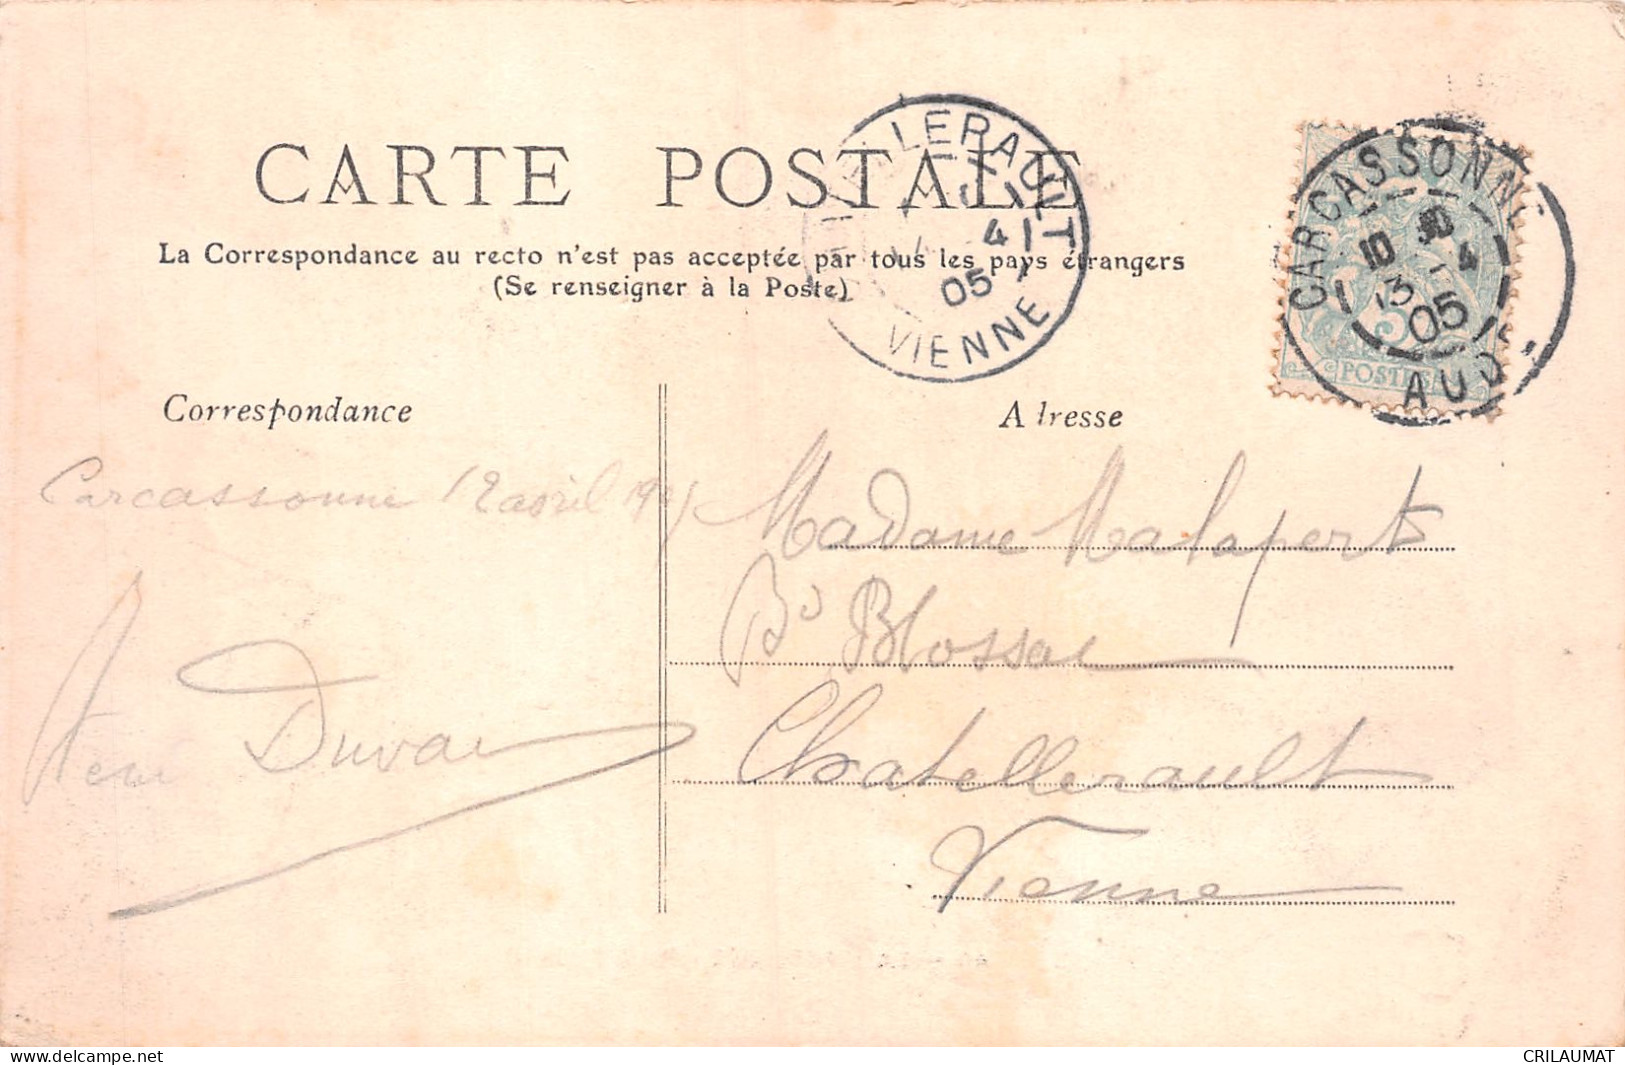 CARTE POSTALE
La Correspondance au recto n'est pas acceptée par tous les pays étrangers
(Se renseigner à la Poste)
LERAULT
4
05
VIENNE
CARCASSONNE
10
4
13
05
AUDE
POSTES
Correspondance
A lresse
Carcassonne 12 avril
Duval
Madame Malapert
Bd Blossac
Chatellerault
Vienne
www.delcampe.net
CRILAUMAT